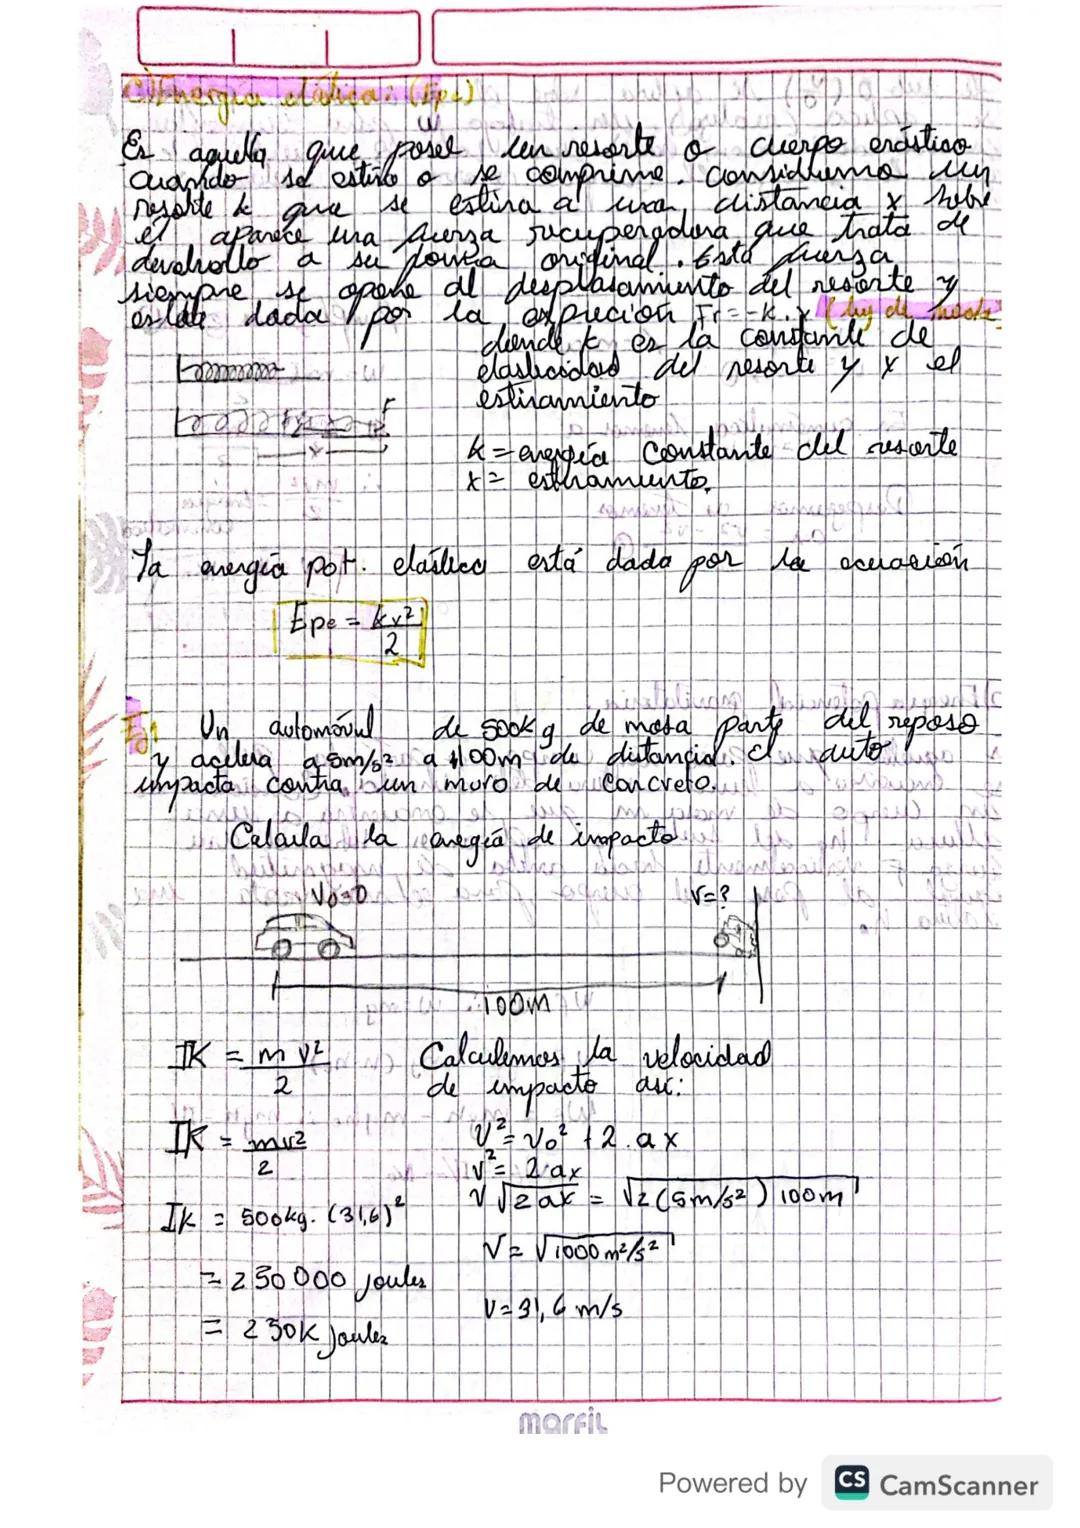 C) Energía elástica: (Epe)
Es aquella que posee un resorte o cuerpo elástico
cuando se estira o se comprime. Consideremo un
resorte k que se estira a una distancia x sobre
él aparece una fuerza recuperadora que trata de
devolverlo a su forma original. Esta fuerza
siempre se opone al desplasamiento del resorte y
estda dada por la expreción Fr = -k.x (ley de Hooke
donde k es la constante de
elasticidad del resorte y x el
estiramiento
F
x
k = energía constante del resorte
x = estiramiento.
La energía pot. elástica está dada por la ecuación
Epe = kx²
2
Ej1 Un automóvul de 500kg de masa parte del reposo
y acelera a 5m/s² a 100m de distancia. El auto
impacta contra un muro de concreto.
Calcula la energía de impacto
V0=0
V=?
100m
IK = m v²
2
Calculemos la velocidad
de impacto así:
IK = mv²
2
V² = V0² + 2.ax
V² = 2.ax
V √2ax = √2(5m/s²) 100m
IK = 500kg. (31,6)²
V = √1000m²/s²
= 250000 joules
V = 31,6 m/s
= 250K joules
marfil
Powered by CS CamScanner